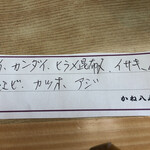 イ、カンダイ、ヒラメ昆布〆 イサキ、
エビ、カツオ、アジ
かね八